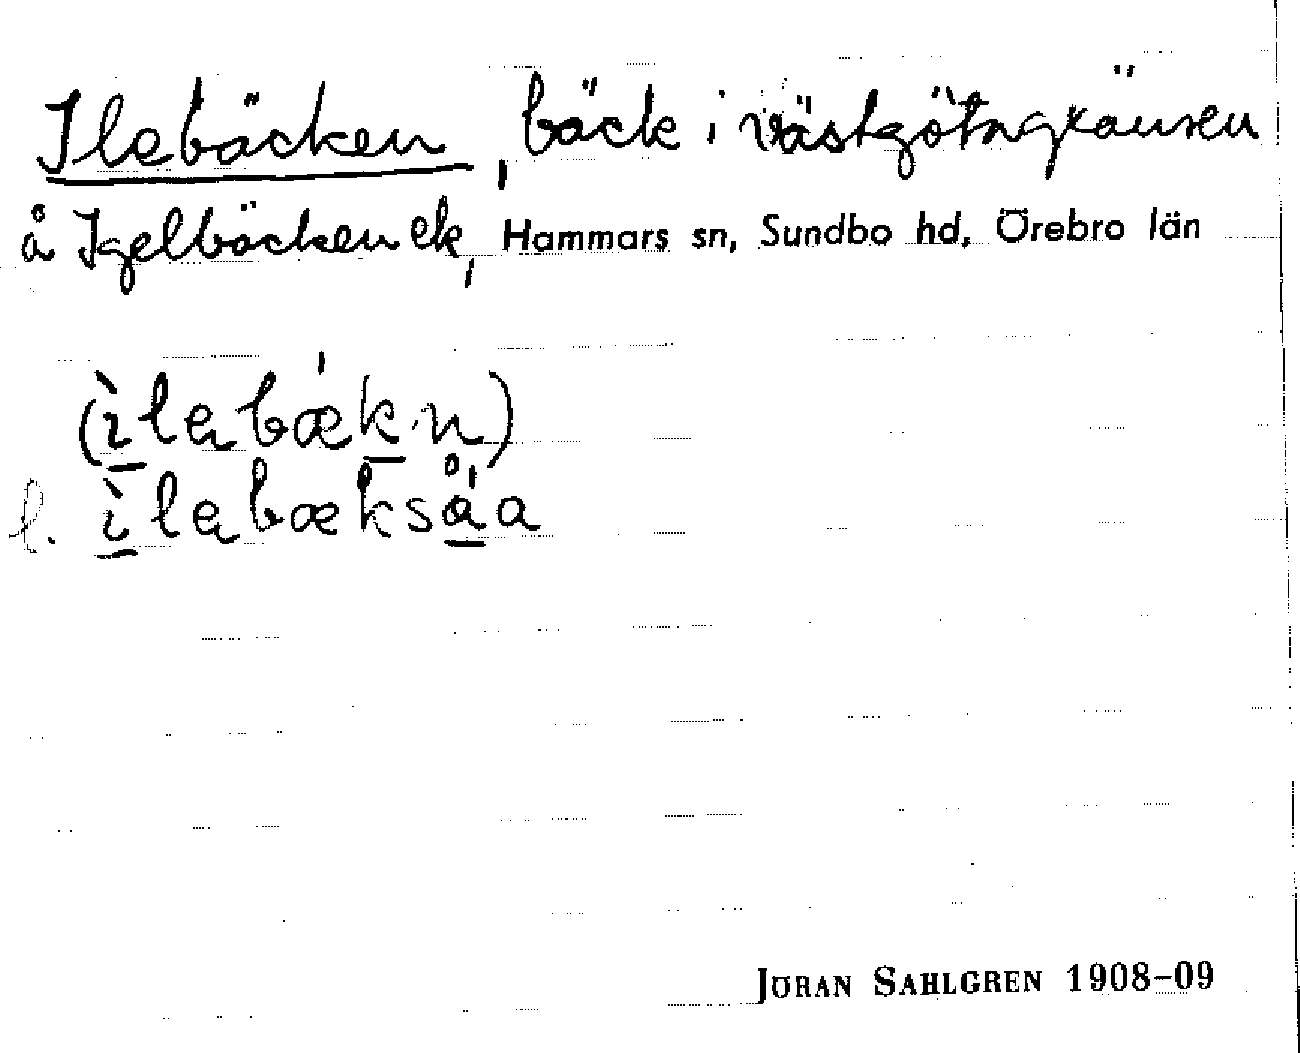 Ilebäcken, bäck i västgötagränsen
å Igelbäcken ek, Hammars sn, Sundbo hd, Örebro län
(ìlebækn)
l. ìlebæksåa
JÖRAN SAHLGREN 1908-09